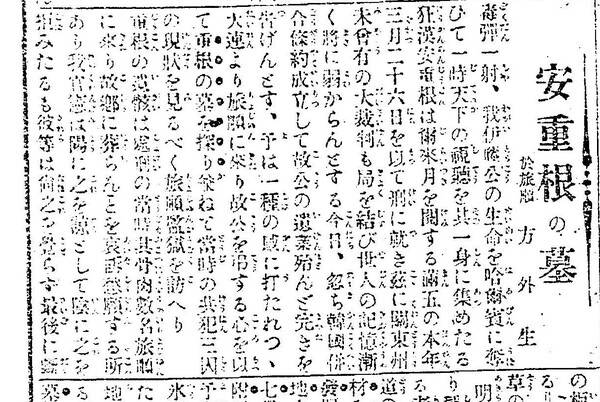 安重根の墓
於旅順 方外生
毒彈一射、我伊藤公の生命を哈爾賓に奪
ひて一時天下の視聽を其一身に集めたる
狂漢安重根は爾來月を閲する滿五の本年
三月二十六日を以て刑に就き玆に關東州
未曾有の大裁判も局を結び世人の記憶漸
く將に弱からんとする今日、忽ち韓國併
合條約成立して故公の遺業殆んど完きを
告げんとす、予は一種の感に打たれつゝ
大連より旅順に來り故公を弔する心を以
て重根の墓を探り兼ねて當時の共犯三囚
の現狀を見るべく旅順監獄を訪へり
重根の遺骸は處刑の當時其骨肉數名旅順
に來り故鄕に葬らんとを哀訴懇願する所
あり我官憲は陽に之を諒として陰に之を
拒みたるも彼等は尙之を最後に